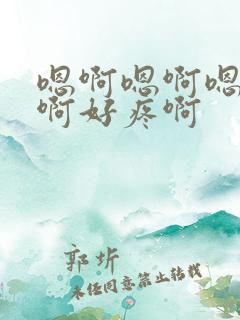 嗯啊嗯啊嗯
啊好疼啊
郭圻
未经同意禁止转载